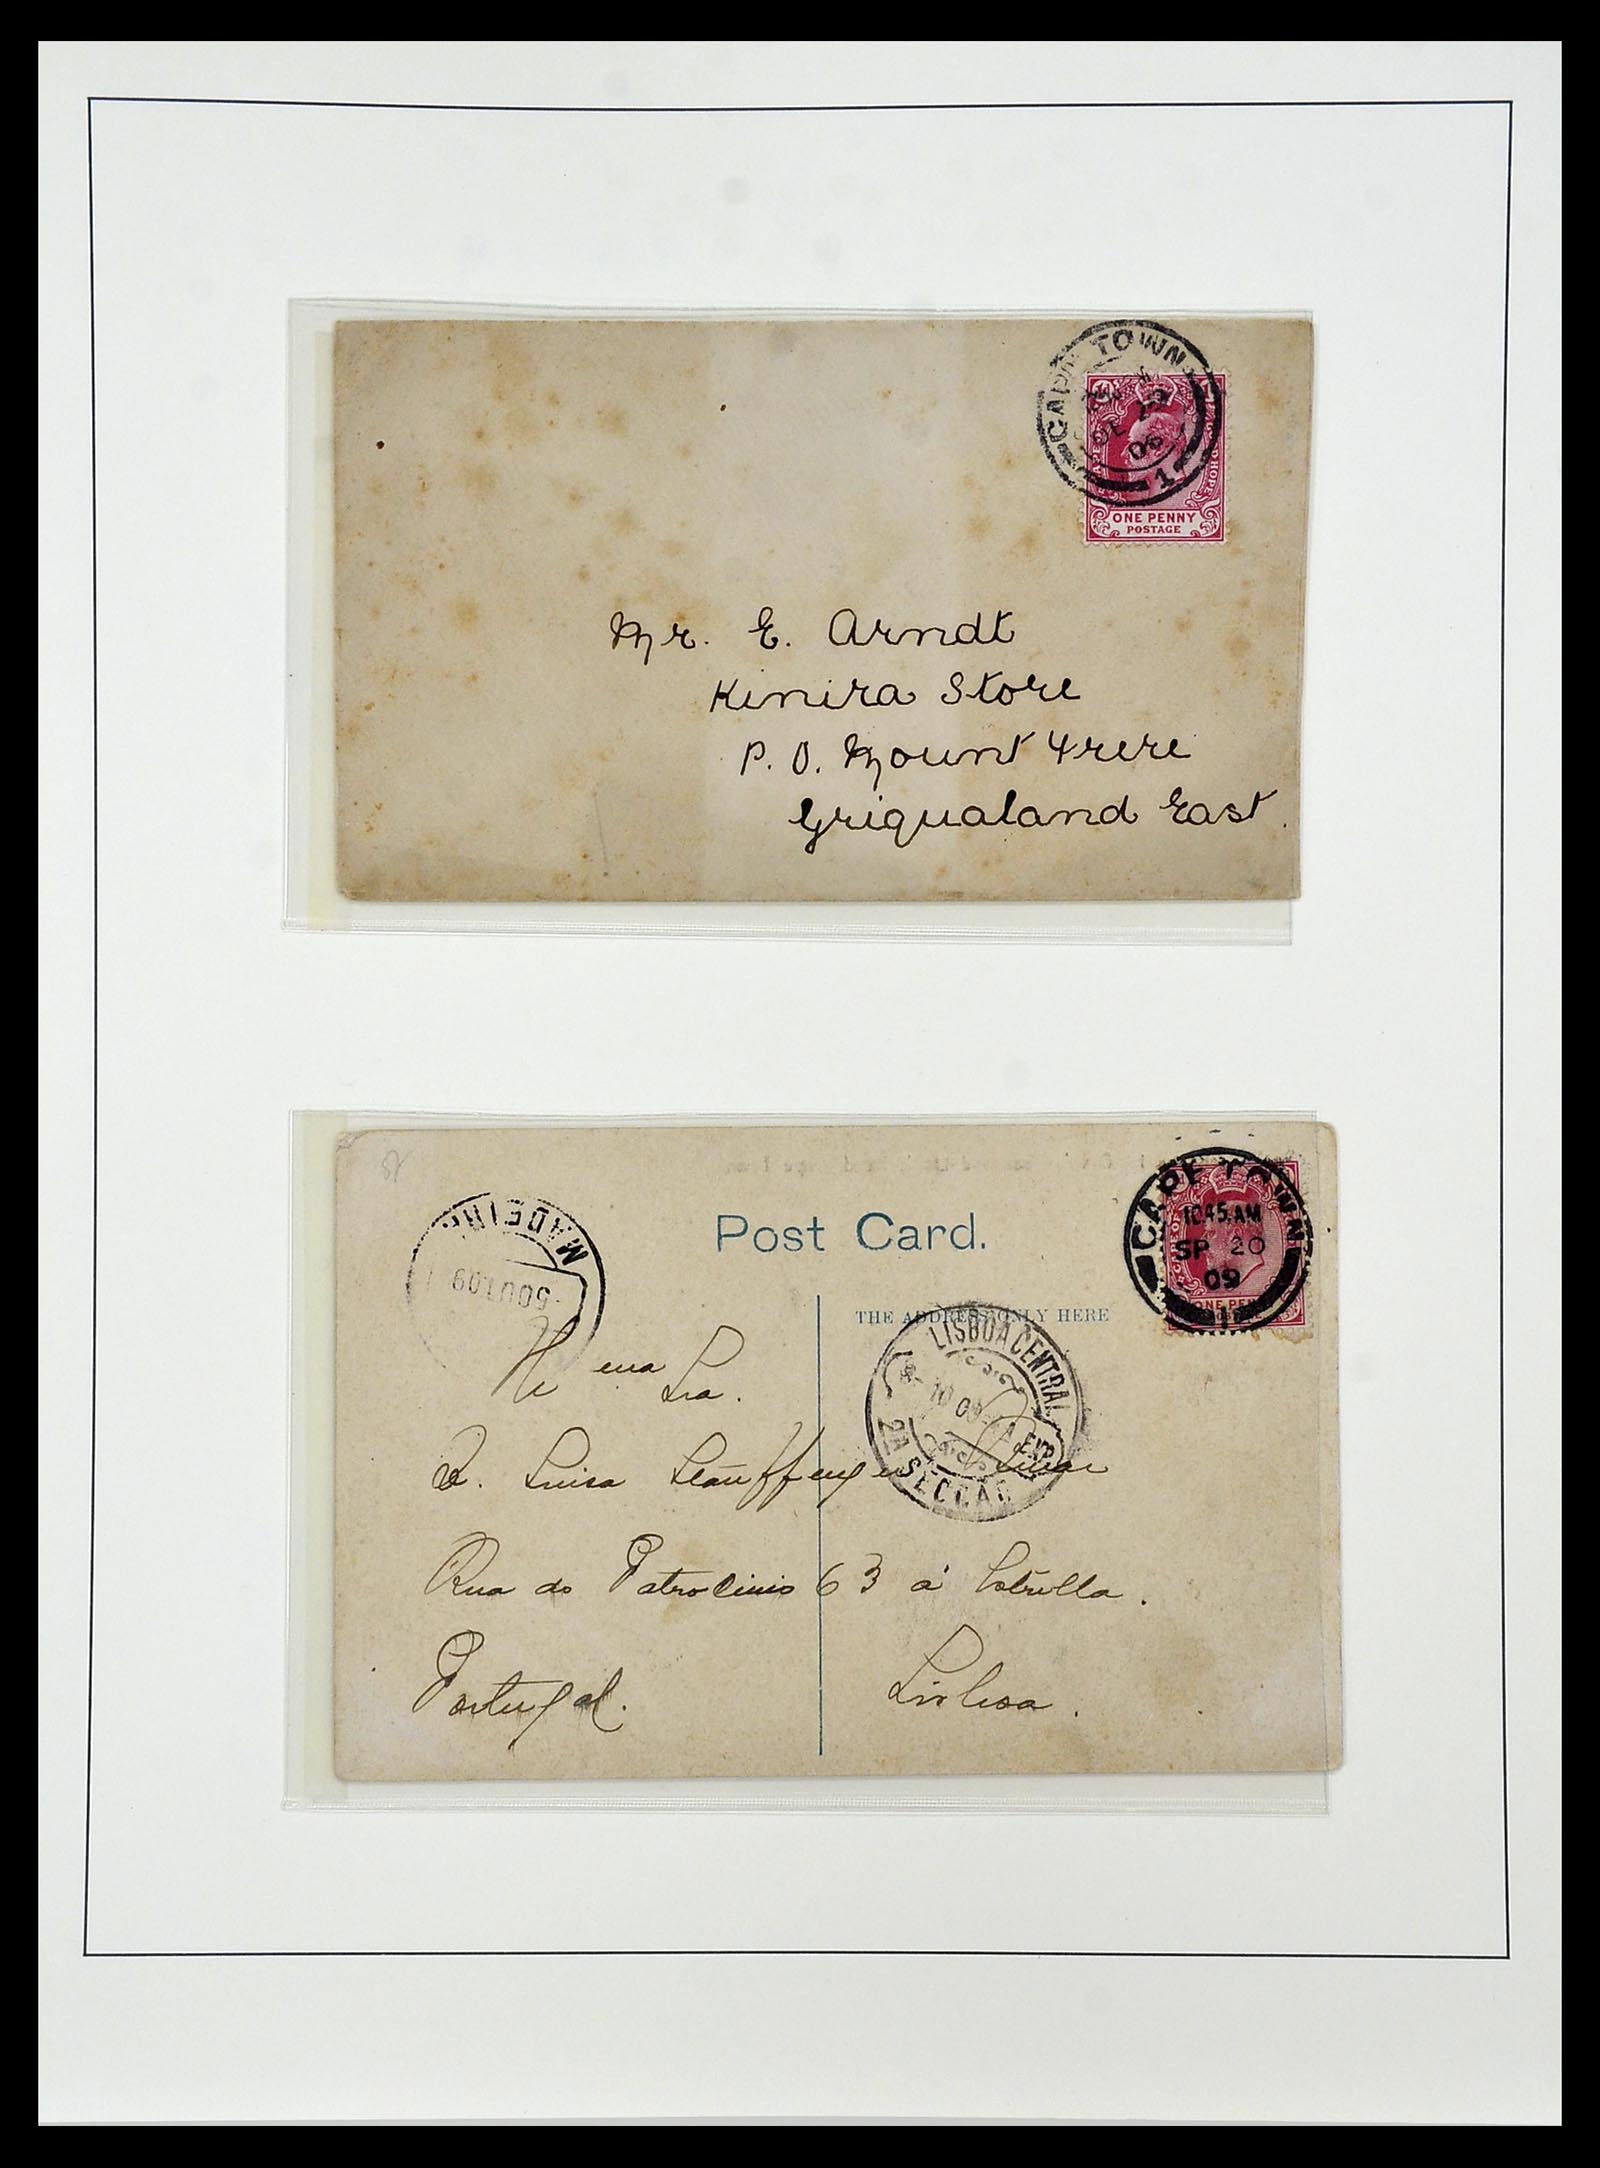 CAPE TOWN
DE
06
1
ONE PENNY
POSTAGE
Mr. E. Arndt
Kinira Store
P. O. Mount Frere
Griqualand East.
CAPE TOWN
10.45.AM
SP 20
09
1
ONE PENNY
MADEIRA
Post Card.
THE ADDRESS ONLY HERE
LISBOA CENTRAL
10 09
EXP
2A SECCÃO
D. Luisa
Rua do Patrocinio 63 á Estrella.
Portugal. Lisboa.